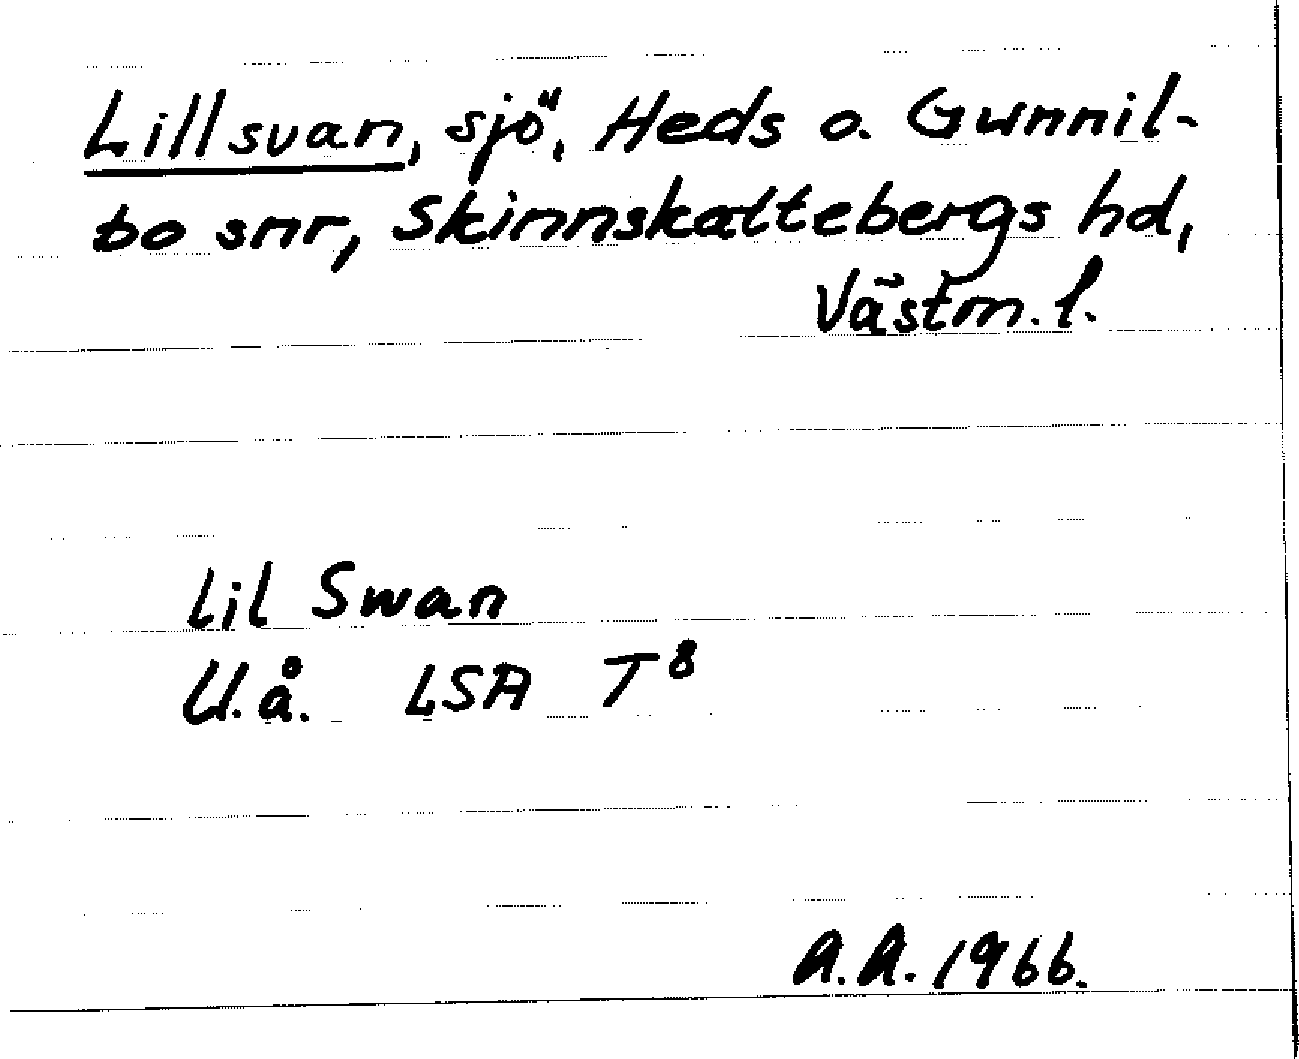 Lillsvan, sjö, Heds o. Gunnil-
bo snr, Skinnskattebergs hd,
Västm. l.
Lil Swan
U.å. LSA T⁸
A.A. 1966.